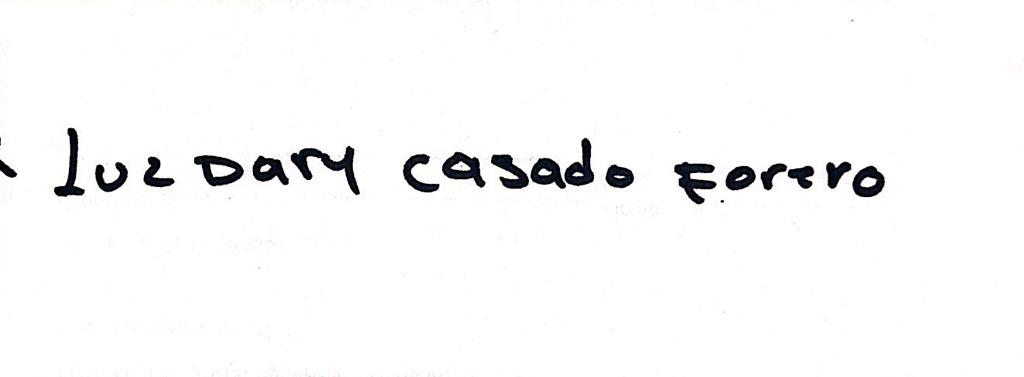 Luz Dary casado Forero